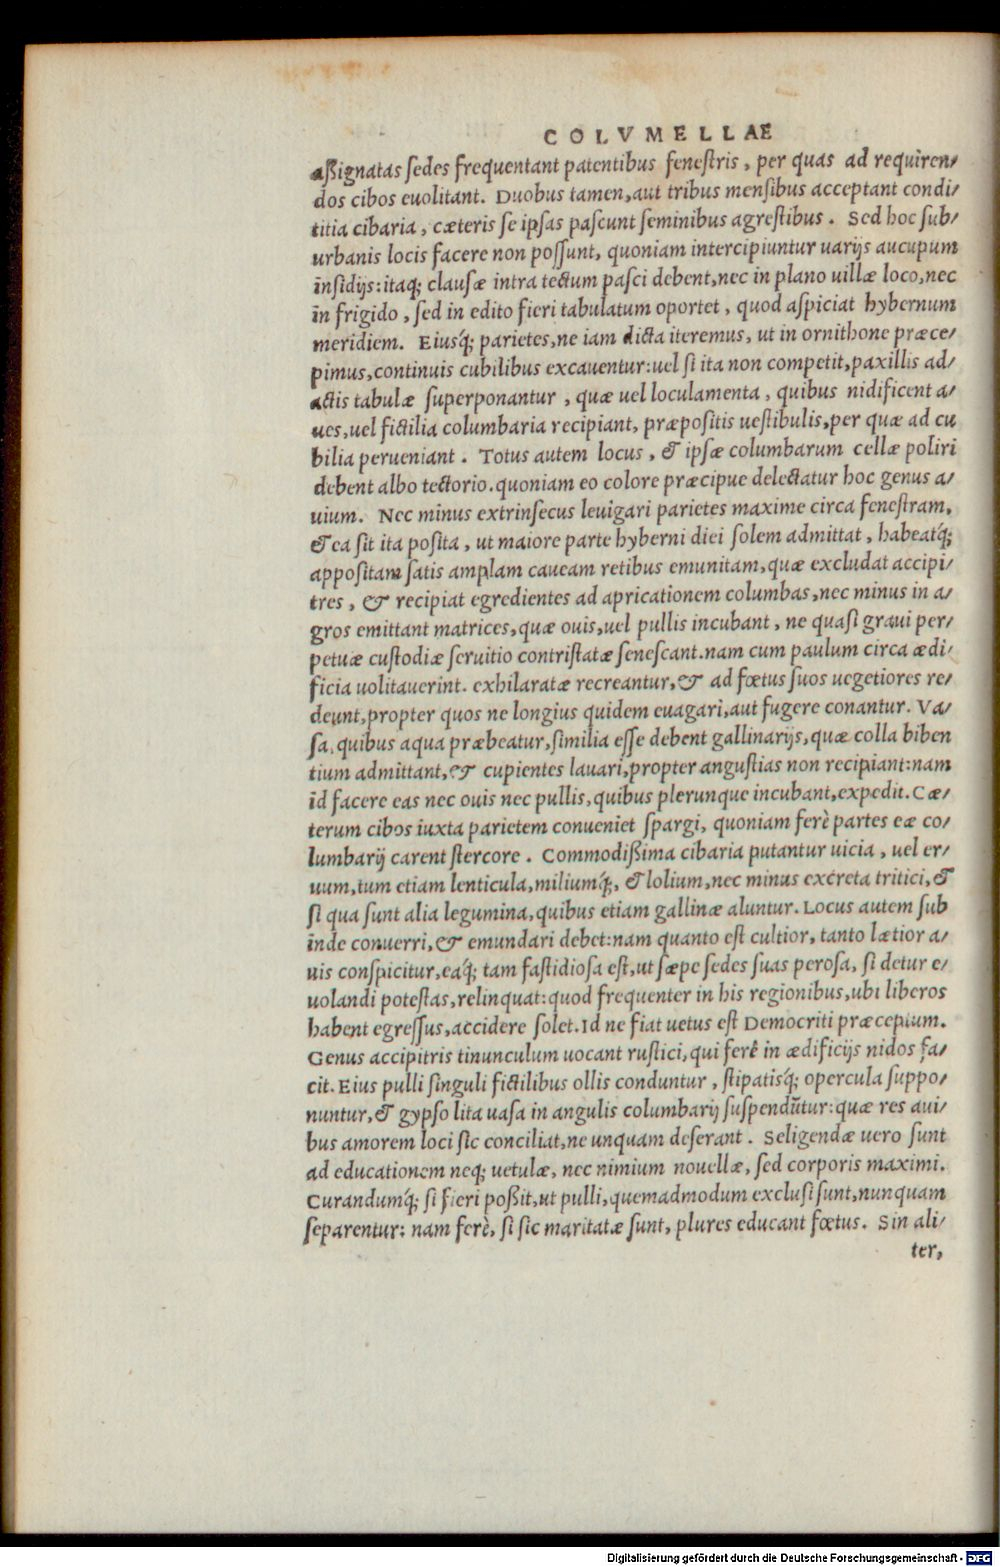 COLVMELLAE
aßignatas ſedes frequentant patentibus feneſtris, per quas ad requiren/
dos cibos euolitant. Duobus tamen, aut tribus menſibus acceptant condi/
titia cibaria, cæteris ſe ipſas paſcunt ſeminibus agreſtibus. Sed hoc ſub/
urbanis locis facere non poſſunt, quoniam intercipiuntur uarijs aucupum
inſidijs: itaq; clauſæ intra tectum paſci debent, nec in plano uillæ loco, nec
in frigido, ſed in edito fieri tabulatum oportet, quod aſpiciat hybernum
meridiem. Eiusq́; parietes, ne iam dicta iteremus, ut in ornithone præce/
pimus, continuis cubilibus excauentur: uel ſi ita non competit, paxillis ad/
actis tabulæ ſuperponantur, quæ uel loculamenta, quibus nidificent a/
ues, uel fictilia columbaria recipiant, præpoſitis ueſtibulis, per quæ ad cu
bilia perueniant. Totus autem locus, & ipſæ columbarum cellæ poliri
debent albo tectorio. quoniam eo colore præcipue delectatur hoc genus a/
uium. Nec minus extrinſecus leuigari parietes maxime circa feneſtram,
& ea ſit ita poſita, ut maiore parte hyberni diei ſolem admittat, habeatq́;
appoſitam ſatis amplam caueam retibus emunitam, quæ excludat accipi/
tres, & recipiat egredientes ad apricationem columbas, nec minus in a/
gros emittant matrices, quæ ouis, uel pullis incubant, ne quaſi graui per/
petuæ cuſtodiæ ſeruitio contriſtatæ ſeneſcant. nam cum paulum circa ædi/
ficia uolitauerint. exhilaratæ recreantur, & ad fœtus ſuos uegetiores re/
deunt, propter quos ne longius quidem euagari, aut fugere conantur. Va/
ſa, quibus aqua præbeatur, ſimilia eſſe debent gallinarijs, quæ colla biben
tium admittant, & cupientes lauari, propter anguſtias non recipiant: nam
id facere eas nec ouis nec pullis, quibus plerunque incubant, expedit. Cæ/
terum cibos iuxta parietem conueniet ſpargi, quoniam ferè partes eæ co/
lumbarij carent ſtercore. Commodißima cibaria putantur uicia, uel er/
uum, tum etiam lenticula, miliumq́;, & lolium, nec minus excreta tritici, &
ſi qua ſunt alia legumina, quibus etiam gallinæ aluntur. Locus autem ſub
inde conuerri, & emundari debet: nam quanto eſt cultior, tanto lætior a/
uis conſpicitur, eaq́; tam faſtidioſa eſt, ut ſæpe ſedes ſuas peroſa, ſi detur e/
uolandi poteſtas, relinquat: quod frequenter in his regionibus, ubi liberos
habent egreſſus, accidere ſolet. Id ne fiat uetus eſt Democriti præceptum.
Genus accipitris tinunculum uocant ruſtici, qui ferè in ædificijs nidos fa/
cit. Eius pulli ſinguli fictilibus ollis conduntur, ſtipatisq́; opercula ſuppo/
nuntur, & gypſo lita uaſa in angulis columbarij ſuſpendũtur: quæ res aui/
bus amorem loci ſic conciliat, ne unquam deſerant. Seligendæ uero ſunt
ad educationem neq; uetulæ, nec nimium nouellæ, ſed corporis maximi.
Curandumq́; ſi fieri poßit, ut pulli, quemadmodum excluſi ſunt, nunquam
ſeparentur: nam ferè, ſi ſic maritatæ ſunt, plures educant fœtus. Sin ali/
ter,
Digitalisierung gefördert durch die Deutsche Forschungsgemeinschaft - DFG